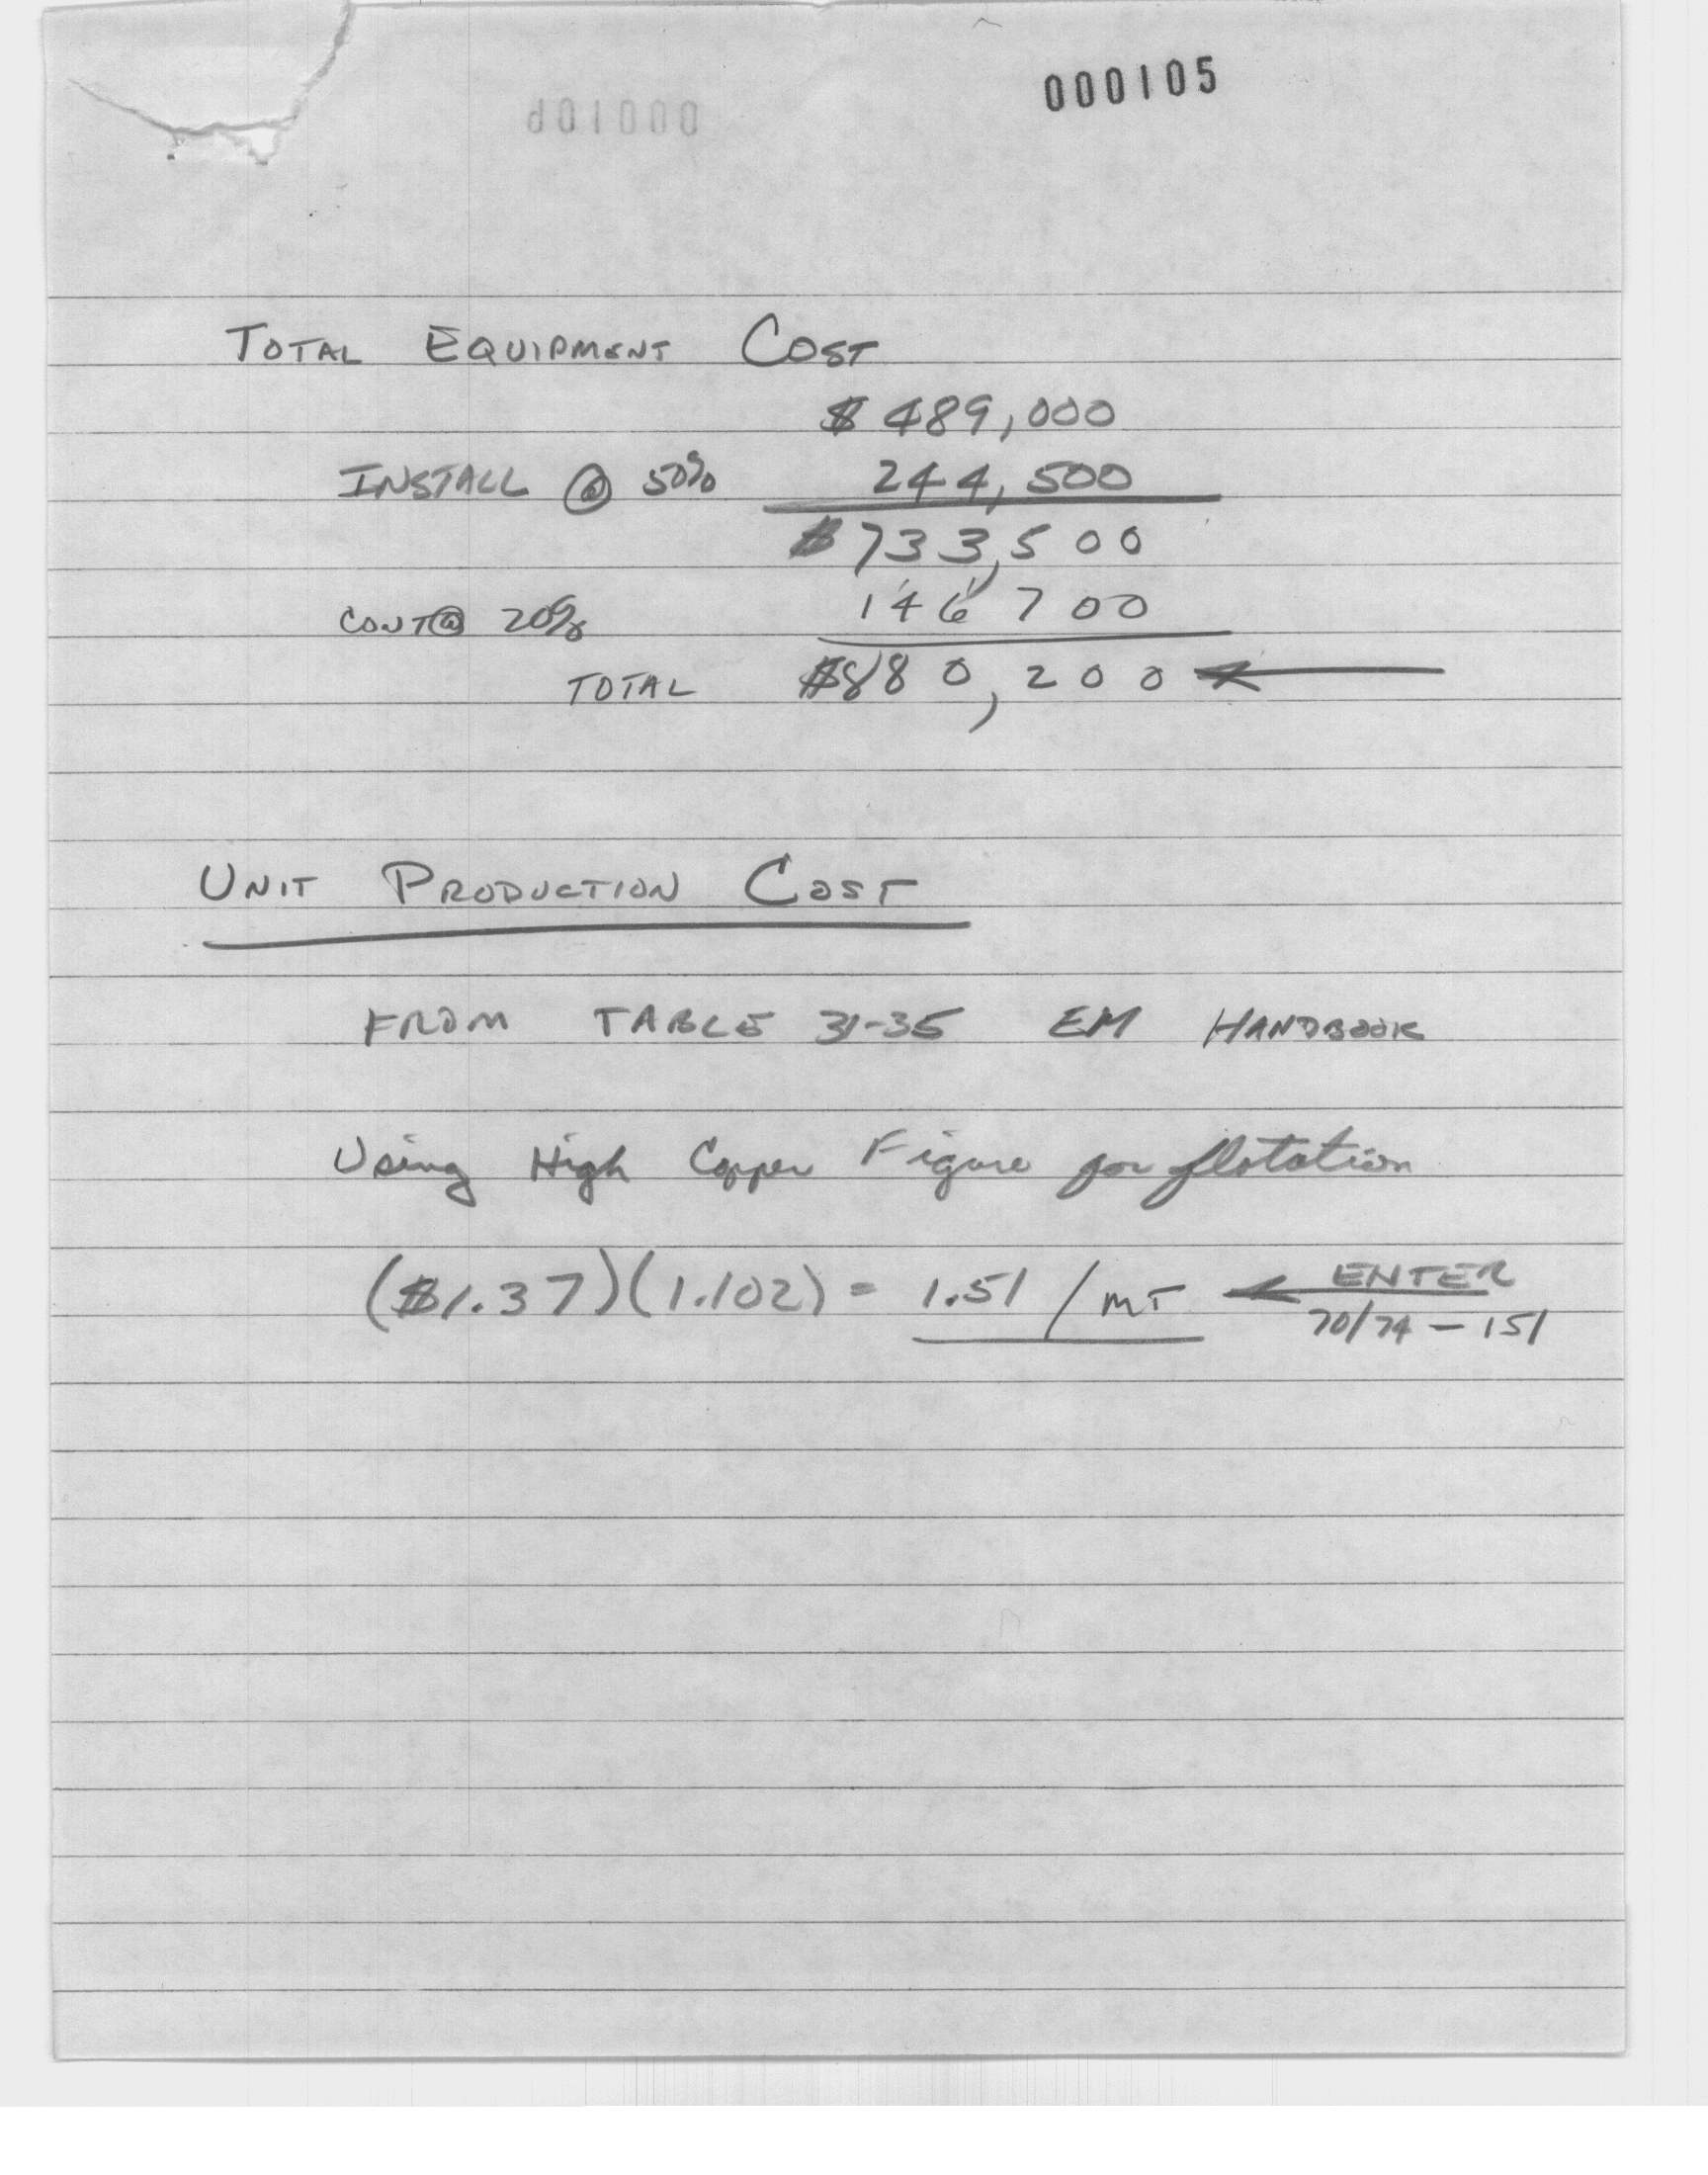 000105
TOTAL EQUIPMENT COST
$ 489,000
INSTALL @ 50% 244,500
$733,500
CONT@ 20% 146700
TOTAL $880,200
UNIT PRODUCTION COST
FROM TABLE 31-35 EM HANDBOOK
Using High Copper Figure for flotation
($1.37)(1.102) = 1.51 / MT ENTER
70/74 - 151